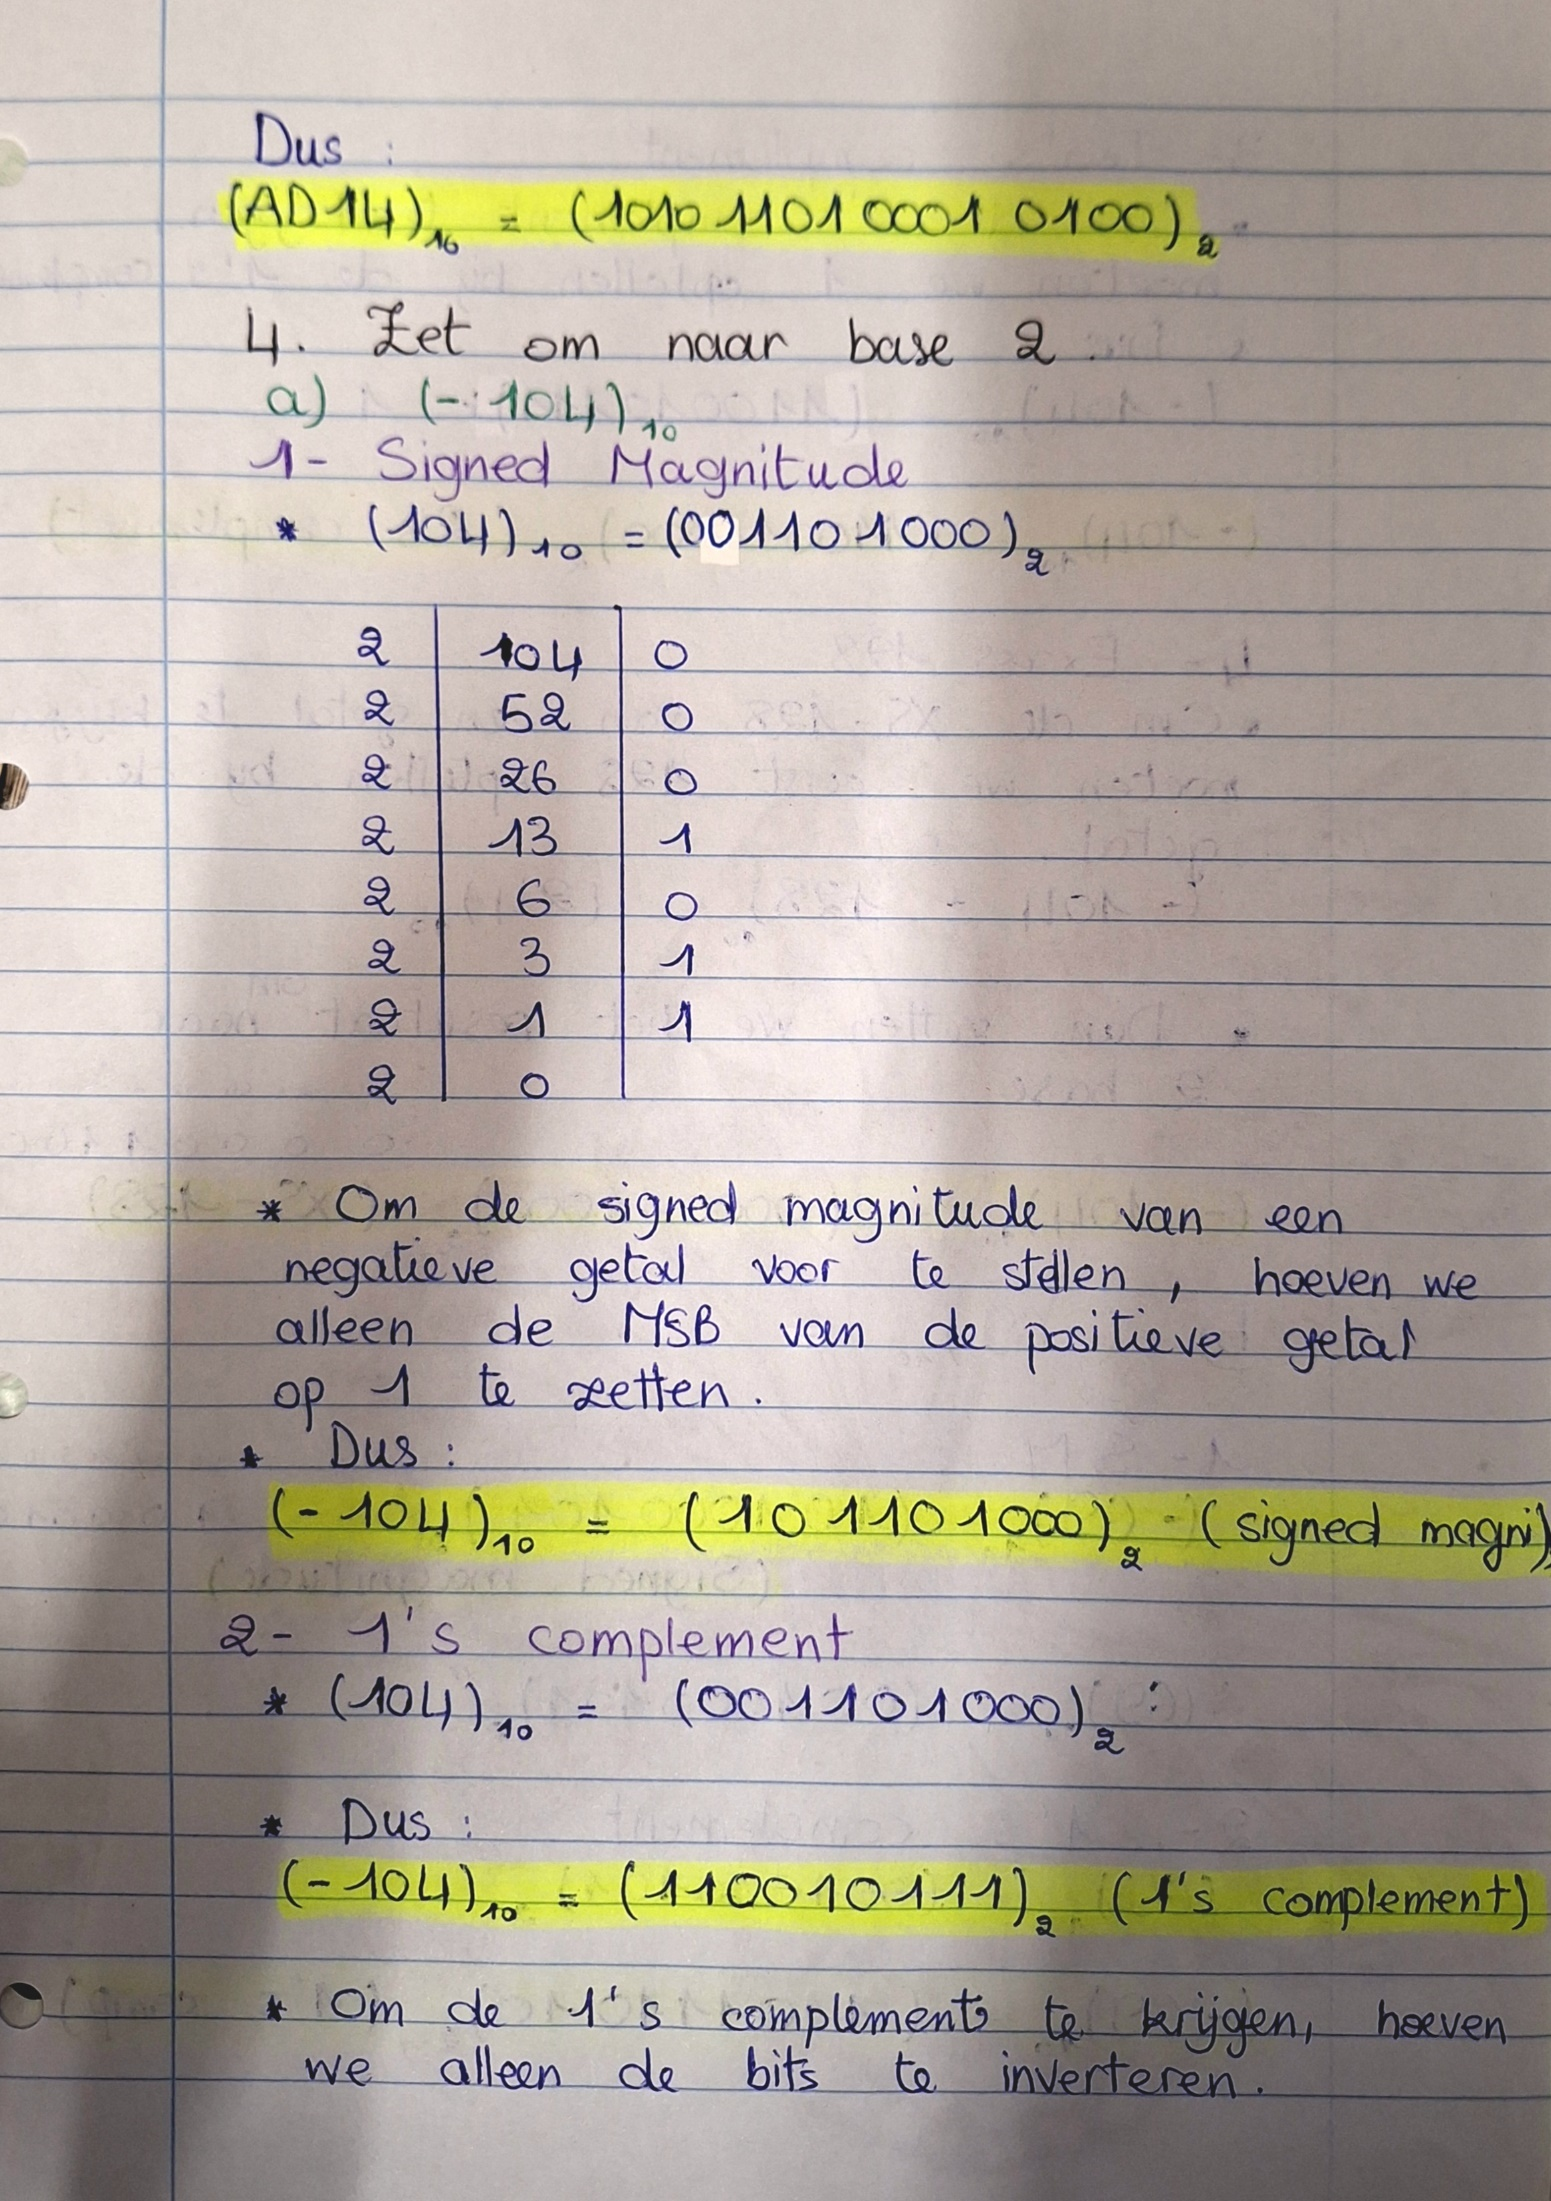 Dus :
(AD14)₁₆ = (1010 1101 0001 0100)₂
4. Zet om naar base 2.
a) (-104)₁₀
1- Signed Magnitude
* (104)₁₀ = (001101000)₂
2 | 104 | 0
2 | 52 | 0
2 | 26 | 0
2 | 13 | 1
2 | 6 | 0
2 | 3 | 1
2 | 1 | 1
2 | 0 |
* Om de signed magnitude van een
negatieve getal voor te stellen, hoeven we
alleen de MSB van de positieve getal
op 1 te zetten.
* Dus :
(-104)₁₀ = (101101000)₂ (signed magni)
2- 1's complement
* (104)₁₀ = (001101000)₂ :
* Dus :
(-104)₁₀ = (110010111)₂ (1's complement)
* Om de 1's complements te krijgen, hoeven
we alleen de bits te inverteren.